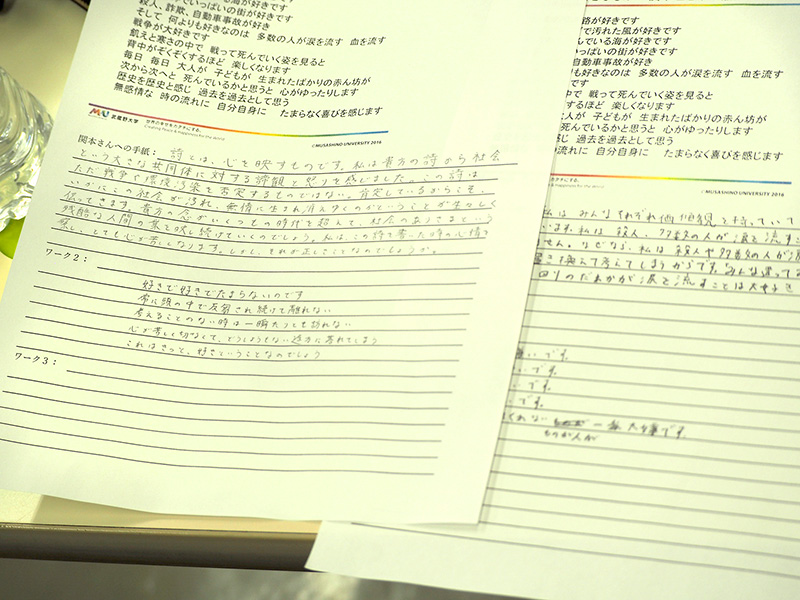 んでいる海が好きです
でいっぱいの街が好きです
殺人、詐欺、自動車事故が好き
そして 何よりも好きなのは 多数の人が涙を流す 血を流す
戦争が大好きです
飢えと寒さの中で 戦って死んでいく姿を見ると
背中がぞくぞくするほど 楽しくなります
毎日 毎日 大人が 子どもが 生まれたばかりの赤ん坊が
次から次へと 死んでいるかと思うと 心がゆったりします
歴史を歴史と感じ 過去を過去として思う
無感情な 時の流れに 自分自身に たまらなく喜びを感じます
MU 武蔵野大学 世界の幸せをカタチにする。
Creating Peace & Happiness for the World
©MUSASHINO UNIVERSITY 2016
関本さんへの手紙： 詩とは、心を映すものです。私は貴方の詩から社会
という大きな共同体に対する諦観と怒りを感じました。この詩は
ただ戦争や環境汚染を否定するものではない。肯定しているからこそ、
いかにこの社会が汚れ、無情に生まれ消えゆくのかということが生々しく
伝ってきます。貴方の念がいくつもの時代を超えて、社会のあさまという
残酷な人間の業を映し続けていくのでしょう。私は、この詩を書いた時の心情を
察し、とても心が苦しくなります。しかし、それが正しことなのでしょうか。
ワーク２：
好きで好きでたまらないのです
常に頭の中で反芻され続けて離れない
考えることのない時は一瞬たりとも訪れない
心が苦しく切なくて、どうしようもない途方に暮れてしまう
これはきっと、好きということなのでしょう
ワーク３：
路が好きです
で汚れた風が好きです
んでいる海が好きです
いっぱいの街が好きです
自動車事故が好き
も好きなのは 多数の人が涙を流す 血を流す
中で 戦って死んでいく姿を見ると
するほど 楽しくなります
大人が 子どもが 生まれたばかりの赤ん坊が
死んでいるかと思うと 心がゆったりします
過去を過去として思う
流れに 自分自身に たまらなく喜びを感じます
& Happiness for the World
©MUSASHINO UNIVERSITY 2016
私は みんなそれぞれ価値観を持っていて
います。私は 殺人、多数の人が涙を流すこ
せん。なぜなら、私は 殺人や多数の人が涙
置き換えて考えてしまうからです。みんな違ってる
回りのだれかが涙を流すことは大好き
いです。
いです。
です。
です。
くれない 一番大事です。
ものが人が